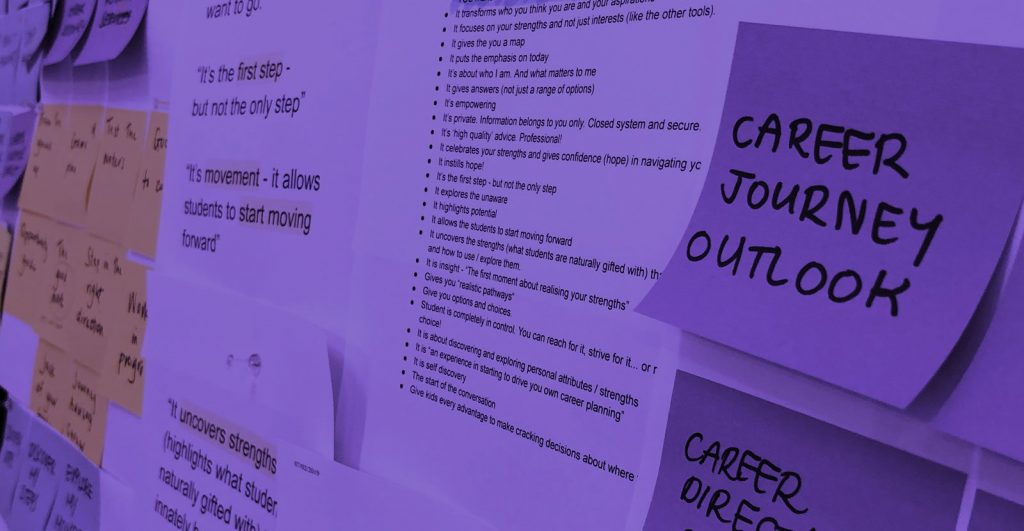 want to go.
"It's the first step -
but not the only step"
"It's movement - it allows
students to start moving
forward"
"It uncovers strengths
(highlights what studen
naturally gifted with)
innately
It transforms who you think you are and your aspirations
It focuses on your strengths and not just interests (like the other tools).
It gives the you a map
It puts the emphasis on today
It's about who I am. And what matters to me
It gives answers (not just a range of options)
It's empowering
It's private. Information belongs to you only. Closed system and secure.
It's 'high quality' advice. Professional!
It celebrates your strengths and gives confidence (hope) in navigating yc
It instills hope!
It's the first step - but not the only step
It explores the unaware
It highlights potential
It allows the students to start moving forward
It uncovers the strengths (what students are naturally gifted with) th
and how to use / explore them.
It is insight - "The first moment about realising your strengths"
Gives you "realistic pathways"
Give you options and choices.
Student is completely in control. You can reach for it, strive for it... or r
choice!
It is about discovering and exploring personal attributes / strengths
It is "an experience in starting to drive you own career planning"
It is self discovery
The start of the conversation
Give kids every advantage to make cracking decisions about where
CAREER
JOURNEY
OUTLOOK
CAREER
DIRECT
Test the
waters
Step in the
right
direction
Work
in
progre